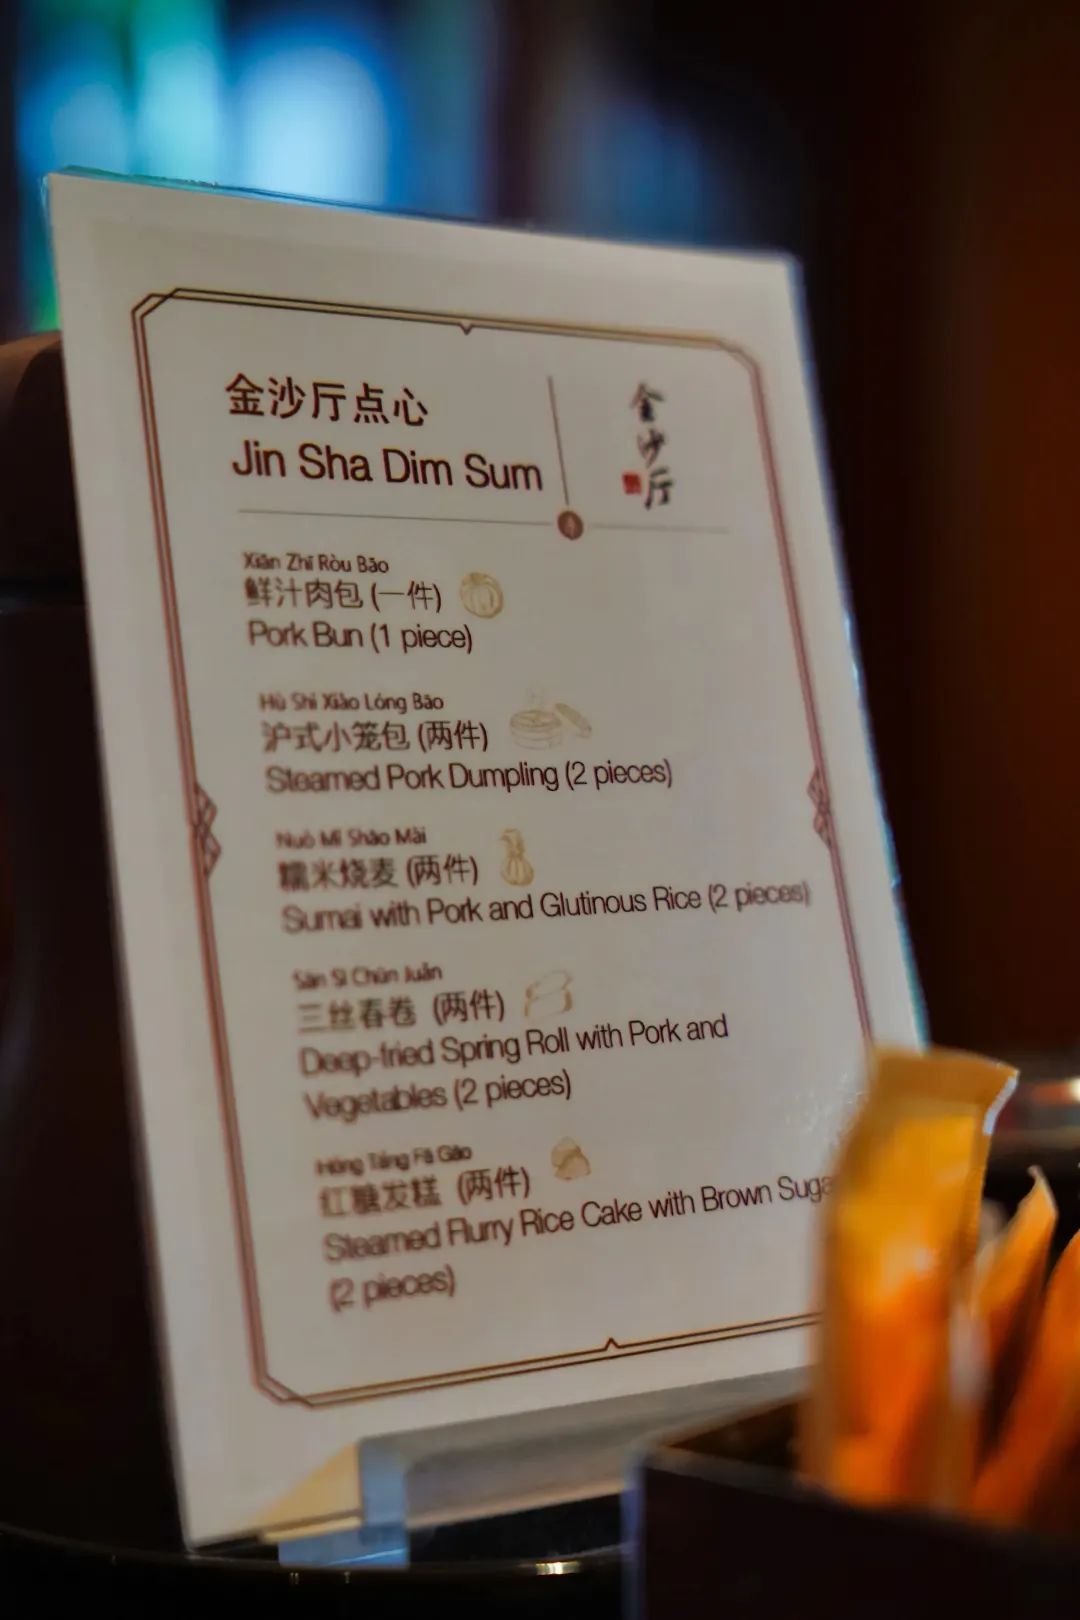 金沙厅点心
Jin Sha Dim Sum
金沙厅
Xiān Zhī Ròu Bāo
鲜汁肉包 (一件)
Pork Bun (1 piece)
Hù Shì Xiǎo Lóng Bāo
沪式小笼包 (两件)
Steamed Pork Dumpling (2 pieces)
Nuò Mǐ Shāo Mài
糯米烧麦 (两件)
Sumai with Pork and Glutinous Rice (2 pieces)
Sān Sī Chūn Juǎn
三丝春卷 (两件)
Deep-fried Spring Roll with Pork and
Vegetables (2 pieces)
Hóng Táng Fā Gāo
红糖发糕 (两件)
Steamed Flurry Rice Cake with Brown Suga
(2 pieces)